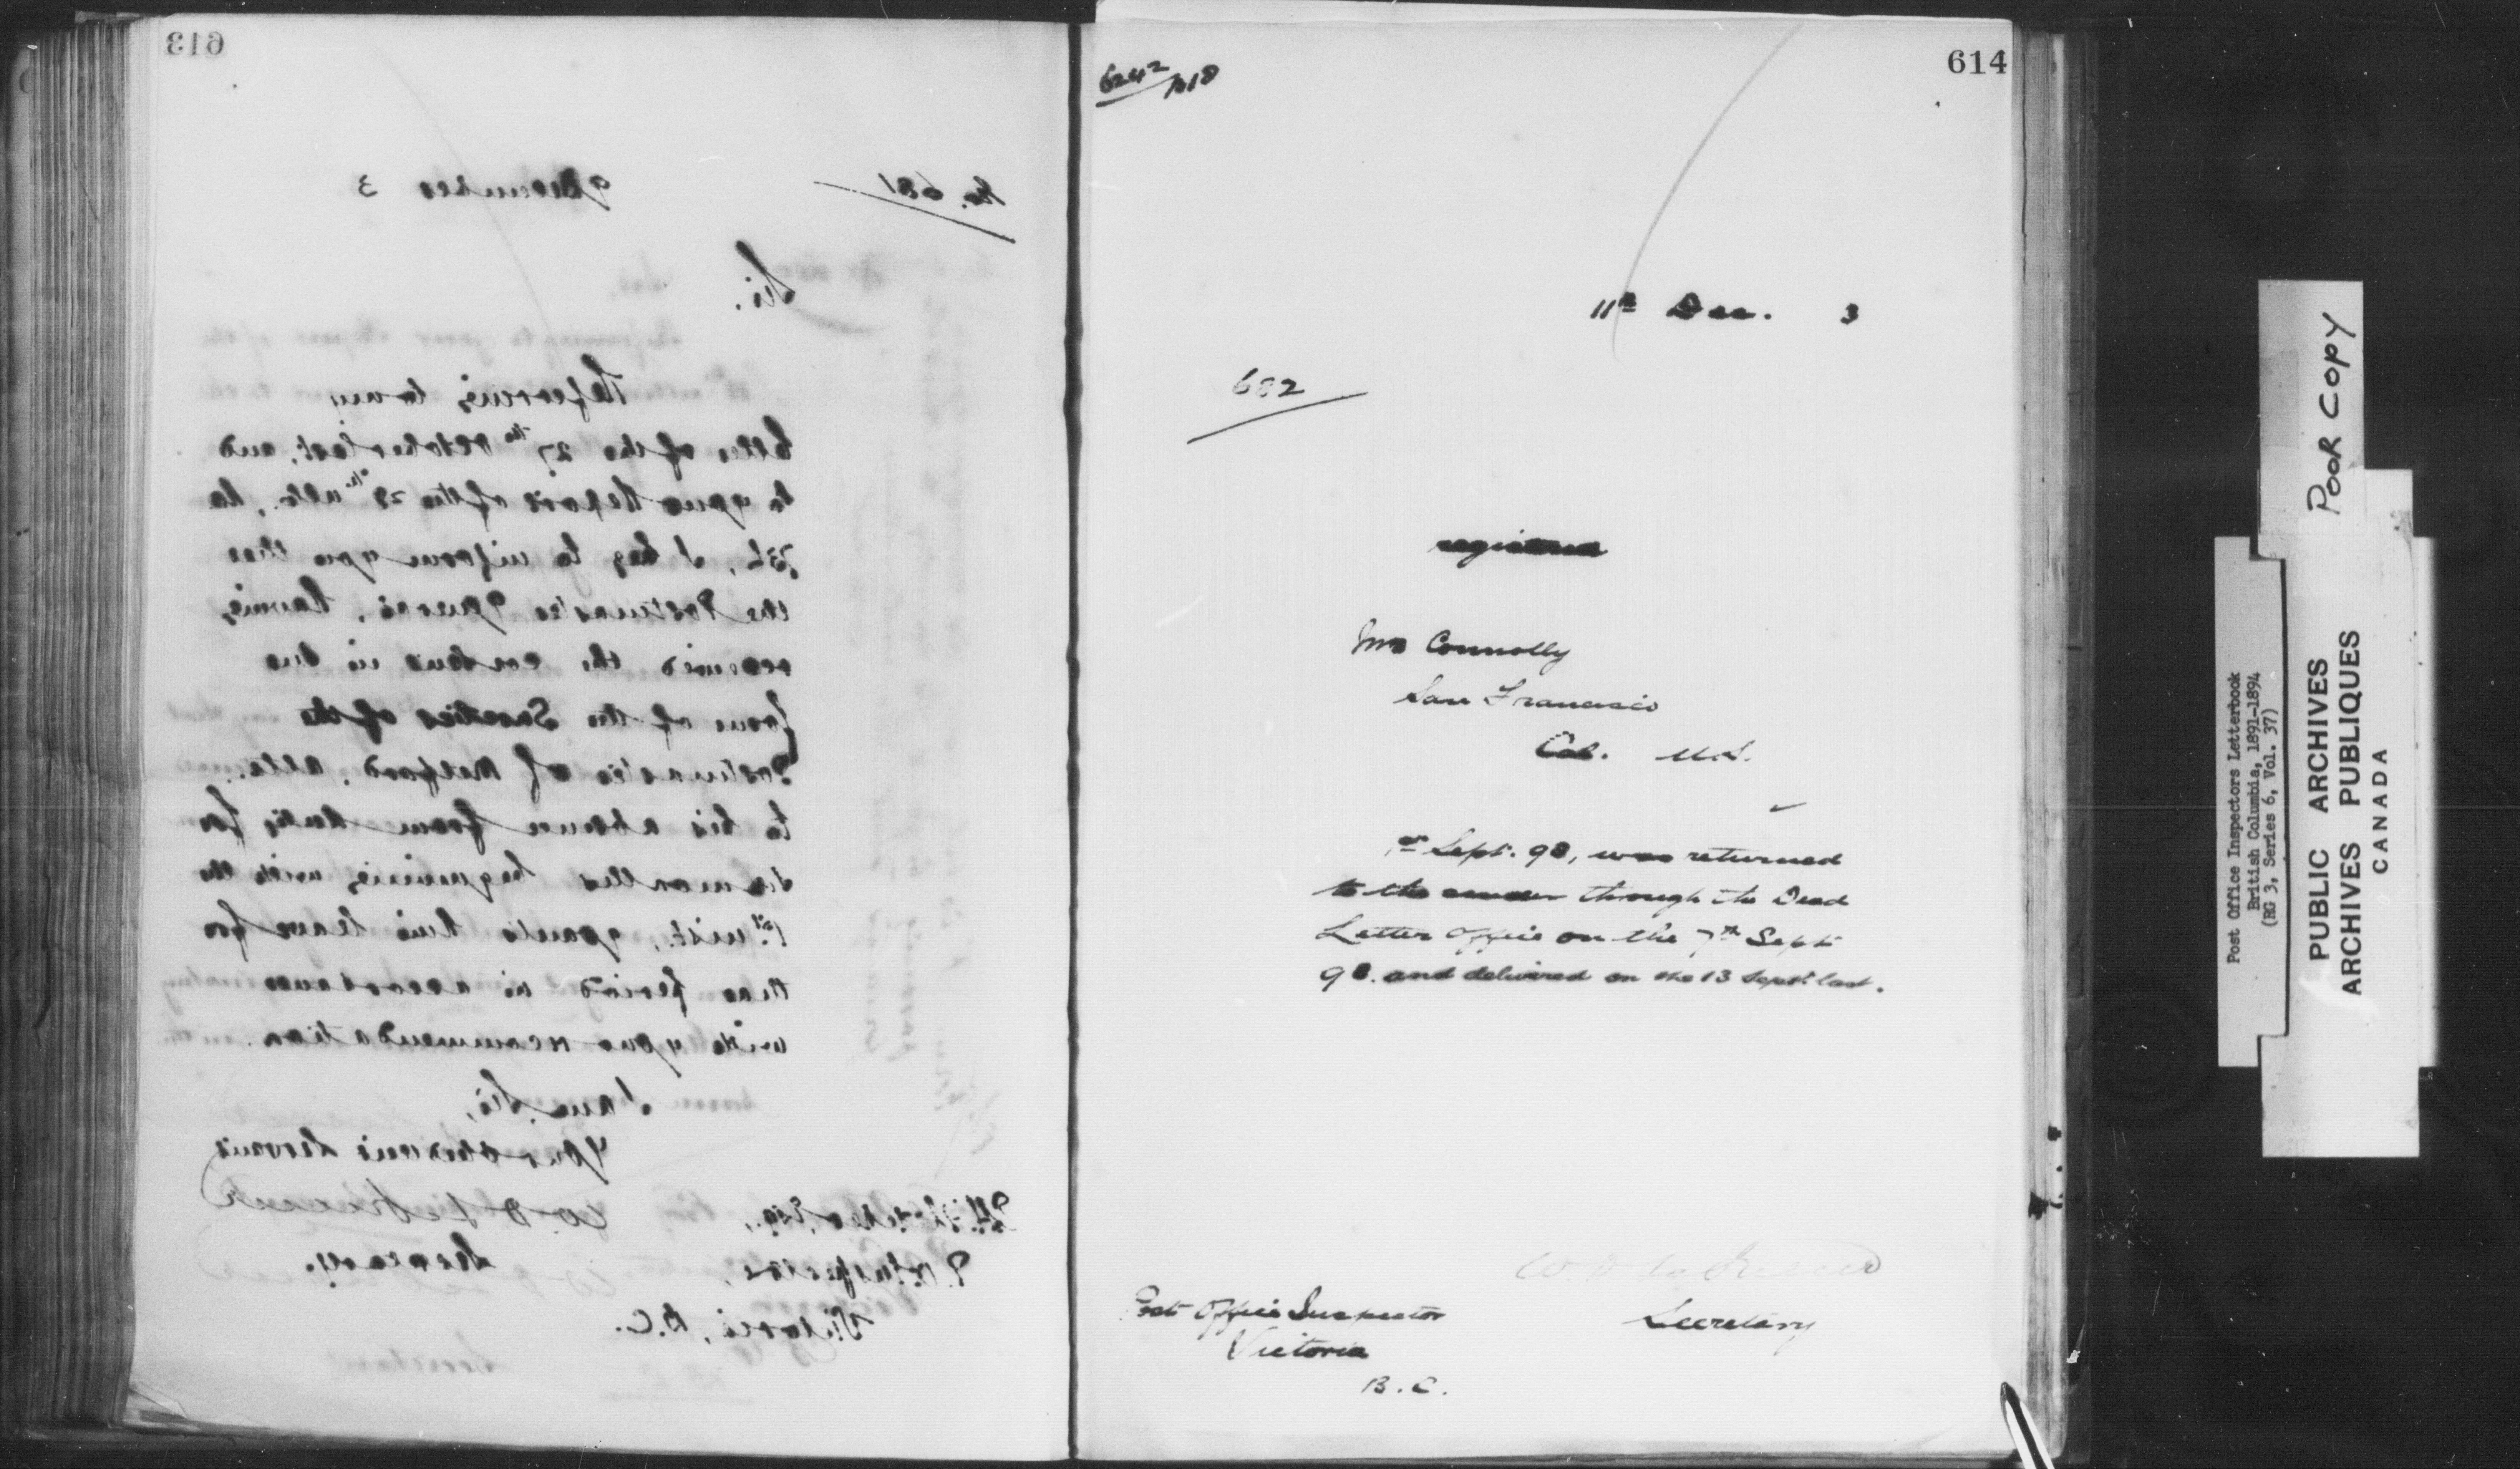 613
No. 681
December 3
Sir.
Referring to my
letter of the 27th October last, and
to your Report of the 29th ulto., No
734, I beg to inform you that
the Postmaster General, having
received the consent in due
form of the Sureties of the
Postmaster of Metford, Alta.
to his absence from duty for
six months beginning with the
1st inst., grants him leave for
that period in accordance
with your recommendation.
I am, Sir,
Your obedient Servant
Secretary.
Esq.,
P.O. Inspector,
Victoria, B.C.
614
11th Dec. 3
682
registered
Mrs Connolly
San Francisco
Cal. U.S.
1st Sept. 93, was returned
to the sender through the Dead
Letter Office on the 7th Sept
93. and delivered on the 13 Sept last.
Secretary
Post Office Inspector
Victoria
B.C.
POOR COPY
Post Office Inspectors Letterbook
British Columbia, 1891-1894
(RG 3, Series 6, Vol. 37)
PUBLIC ARCHIVES
ARCHIVES PUBLIQUES
CANADA